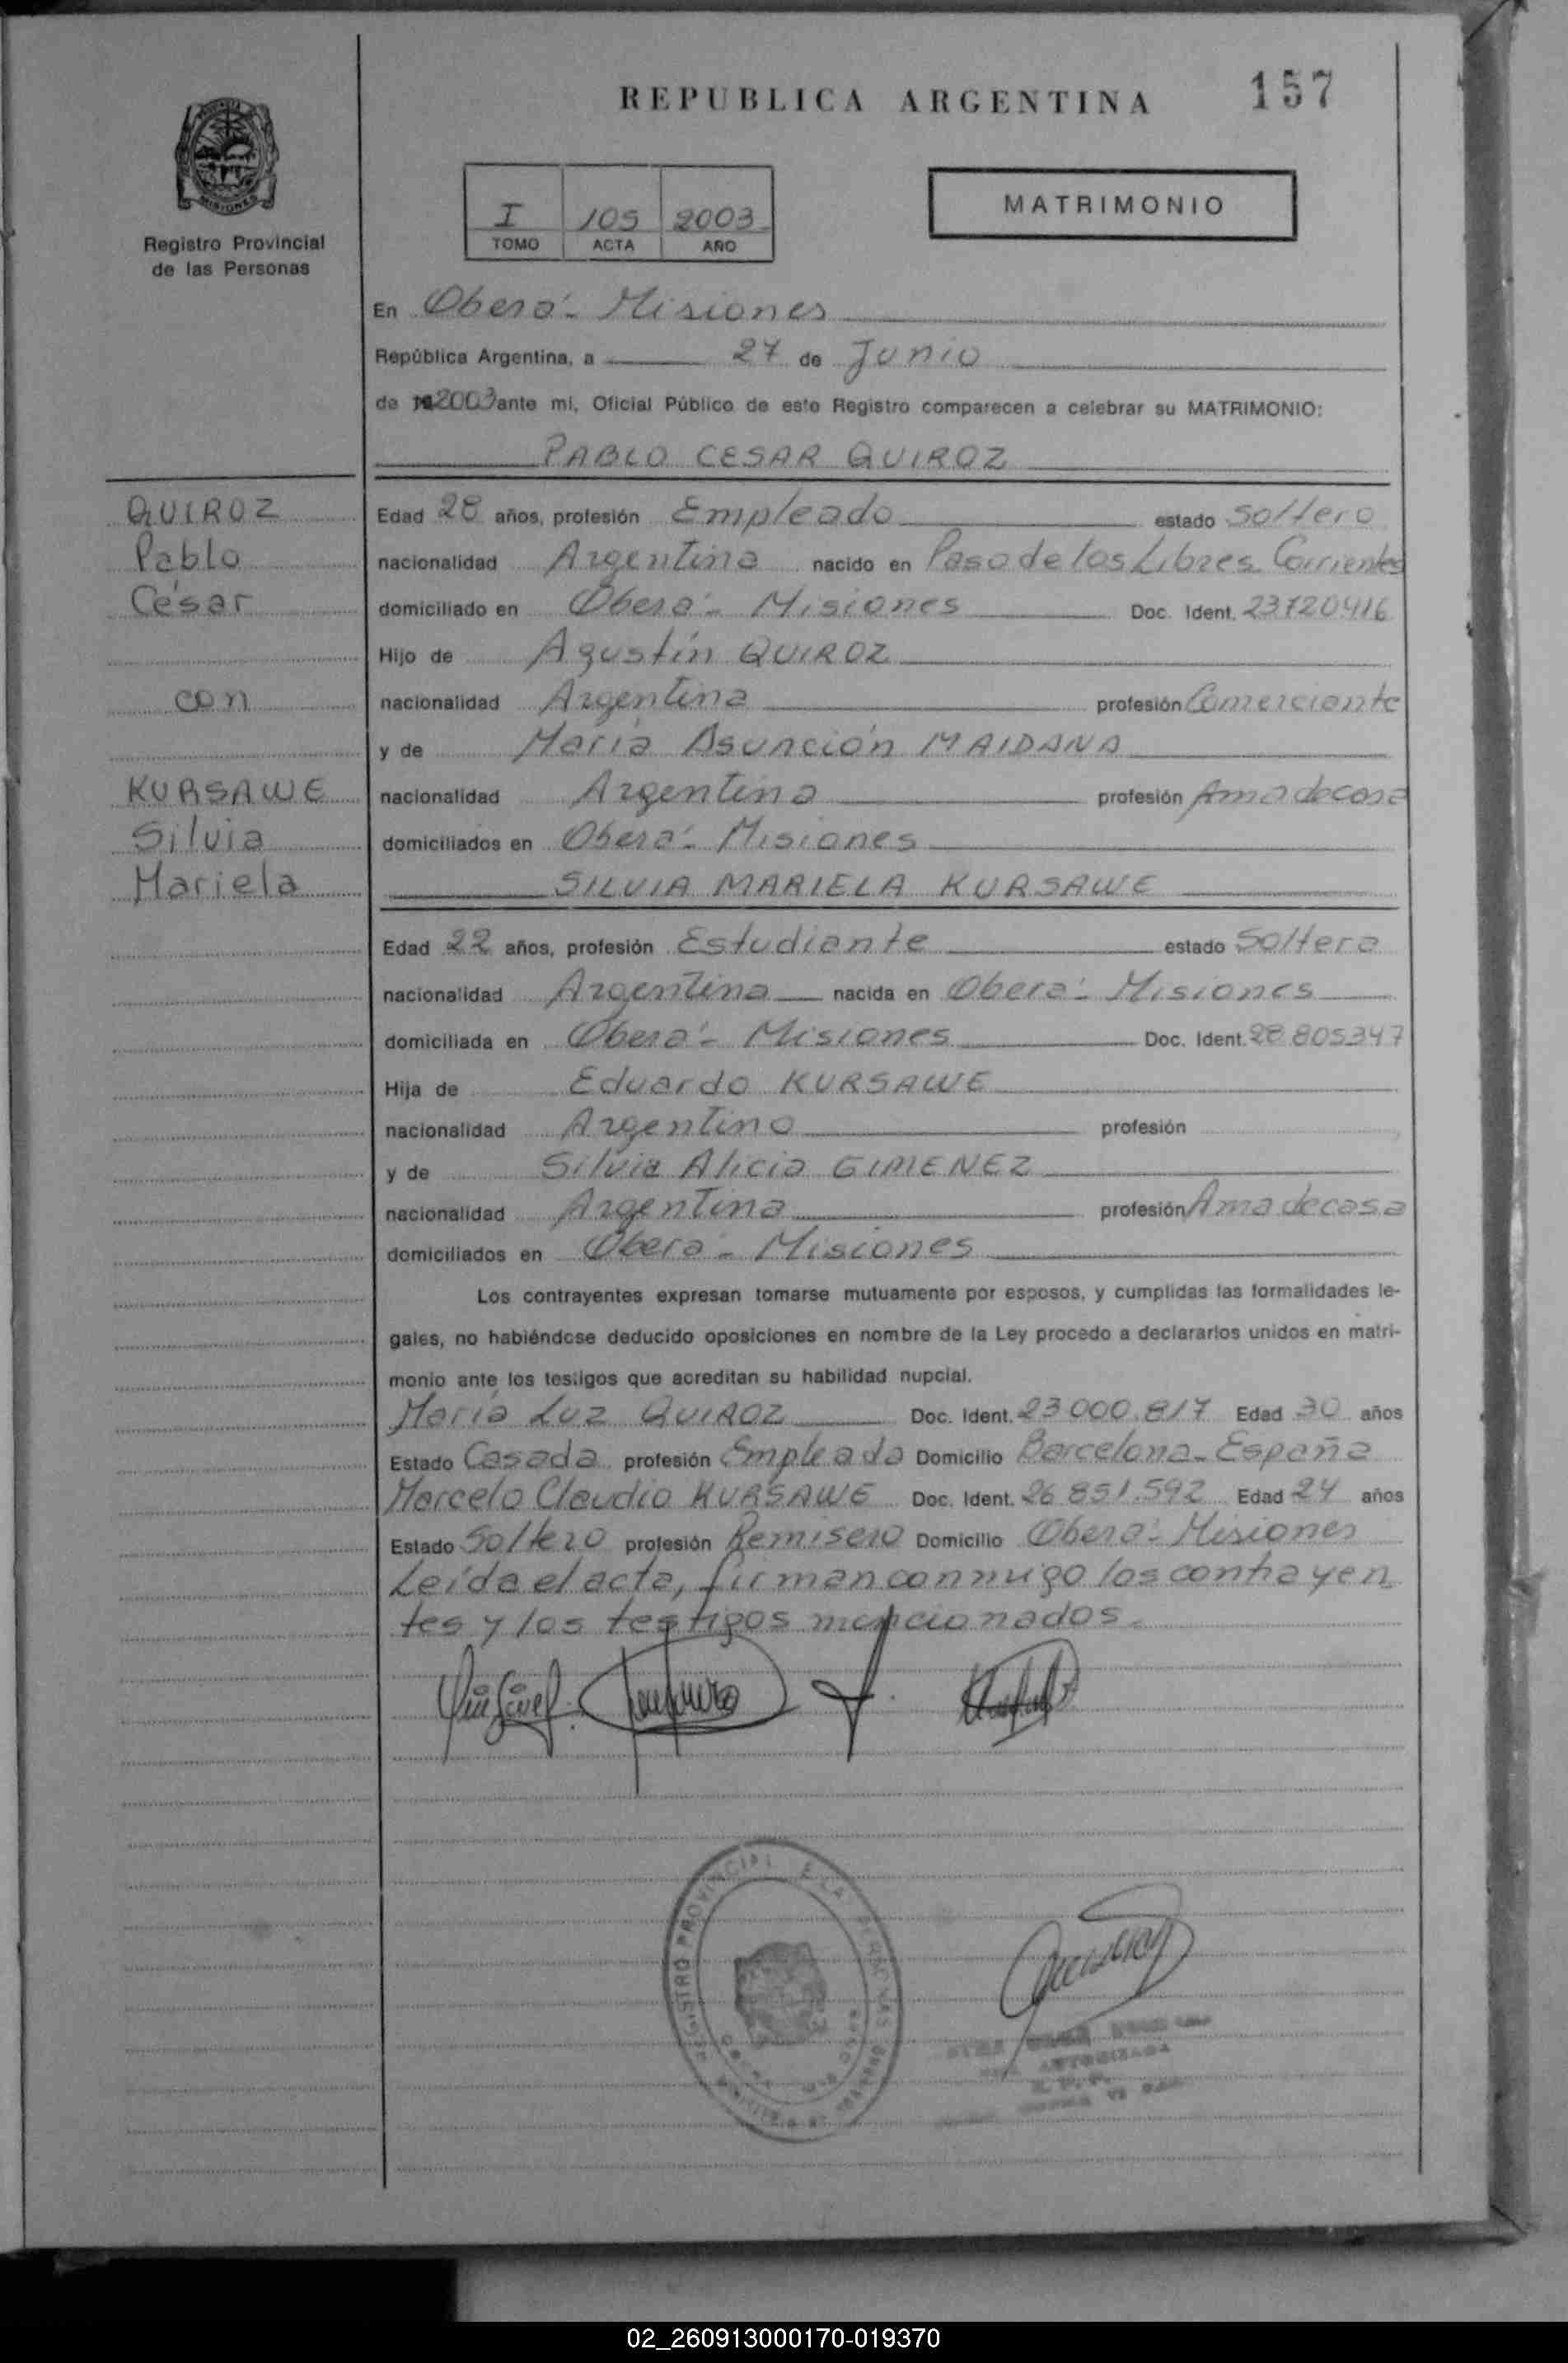 REPUBLICA ARGENTINA 157
MISIONES
Registro Provincial
de las Personas
I 105 2003
TOMO ACTA AÑO
MATRIMONIO
En Oberá - Misiones
República Argentina, a 27 de Junio
de 2003 ante mí, Oficial Público de este Registro comparecen a celebrar su MATRIMONIO:
PABLO CESAR QUIROZ
QUIROZ
Pablo
César
con
KURSAWE
Silvia
Mariela
Edad 28 años, profesión Empleado estado Soltero
nacionalidad Argentina nacido en Paso de los Libres Corrientes
domiciliado en Oberá - Misiones Doc. Ident. 23720416
Hijo de Agustín QUIROZ
nacionalidad Argentina profesión Comerciante
y de María Asunción MAIDANA
nacionalidad Argentina profesión Ama de casa
domiciliados en Oberá - Misiones
SILVIA MARIELA KURSAWE
Edad 22 años, profesión Estudiante estado Soltera
nacionalidad Argentina nacida en Oberá - Misiones
domiciliada en Oberá - Misiones Doc. Ident. 28.805347
Hija de Eduardo KURSAWE
nacionalidad Argentino profesión
y de Silvia Alicia GIMENEZ
nacionalidad Argentina profesión Ama de casa
domiciliados en Oberá - Misiones
Los contrayentes expresan tomarse mutuamente por esposos, y cumplidas las formalidades le-
gales, no habiéndose deducido oposiciones en nombre de la Ley procedo a declararlos unidos en matri-
monio ante los testigos que acreditan su habilidad nupcial.
María Luz QUIROZ Doc. Ident. 23.000.817 Edad 30 años
Estado Casada profesión Empleada Domicilio Barcelona - España
Marcelo Claudio KURSAWE Doc. Ident. 26.851.592 Edad 24 años
Estado Soltero profesión Remisero Domicilio Oberá - Misiones
Leída el acta, firman conmigo los contrayen
tes y los testigos mencionados.
REGISTRO PROVINCIAL
AUTORIZADA
02_260913000170-019370